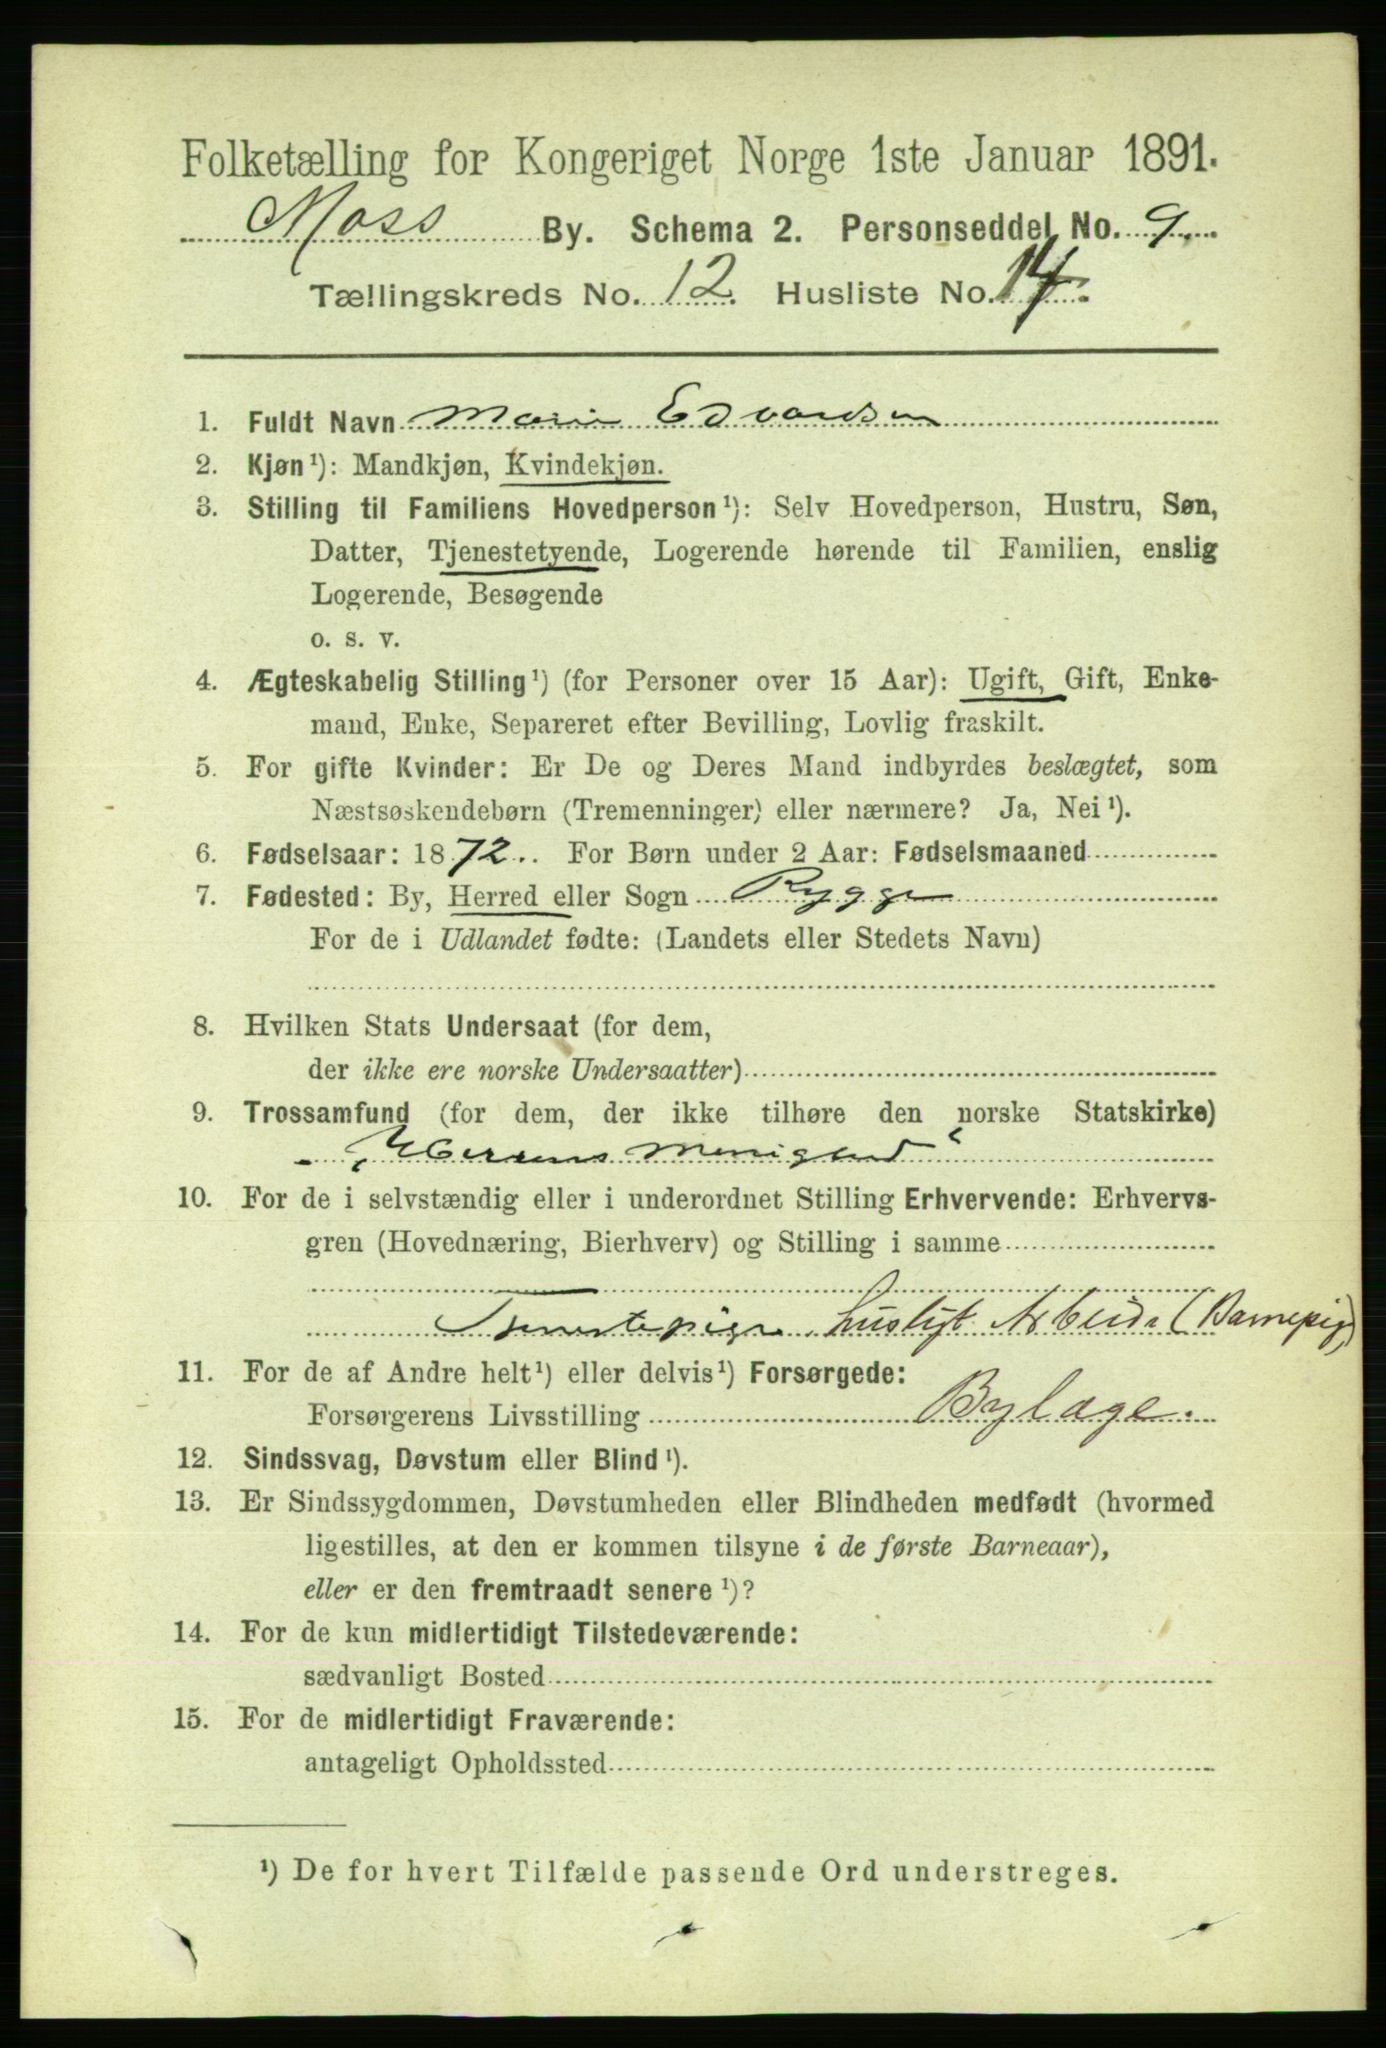 Folketælling for Kongeriget Norge 1ste Januar 1891.
Moss By. Schema 2. Personseddel No. 9.
Tællingskreds No. 12. Husliste No. 14.
1. Fuldt Navn Marie Edvardsen
2. Kjøn¹): Mandkjøn, Kvindekjøn.
3. Stilling til Familiens Hovedperson¹): Selv Hovedperson, Hustru, Søn,
Datter, Tjenestetyende, Logerende hørende til Familien, enslig
Logerende, Besøgende
o. s. v.
4. Ægteskabelig Stilling¹) (for Personer over 15 Aar): Ugift, Gift, Enke-
mand, Enke, Separeret efter Bevilling, Lovlig fraskilt.
5. For gifte Kvinder: Er De og Deres Mand indbyrdes beslægtet, som
Næstsøskendebørn (Tremenninger) eller nærmere? Ja, Nei¹).
6. Fødselsaar: 1872. For Børn under 2 Aar: Fødselsmaaned
7. Fødested: By, Herred eller Sogn Rygge
For de i Udlandet fødte: (Landets eller Stedets Navn)
8. Hvilken Stats Undersaat (for dem,
der ikke ere norske Undersaatter)
9. Trossamfund (for dem, der ikke tilhøre den norske Statskirke)
„Herrens Menighed“
10. For de i selvstændig eller i underordnet Stilling Erhvervende: Erhvervs-
gren (Hovednæring, Bierhverv) og Stilling i samme
Tjenestepige husligt Arbeide (Barnepige)
11. For de af Andre helt¹) eller delvis¹) Forsørgede:
Forsørgerens Livsstilling
12. Sindssvag, Døvstum eller Blind¹).
13. Er Sindssygdommen, Døvstumheden eller Blindheden medfødt (hvormed
ligestilles, at den er kommen tilsyne i de første Barneaar),
eller er den fremtraadt senere¹)?
14. For de kun midlertidigt Tilstedeværende:
sædvanligt Bosted
15. For de midlertidigt Fraværende:
antageligt Opholdssted
¹) De for hvert Tilfælde passende Ord understreges.